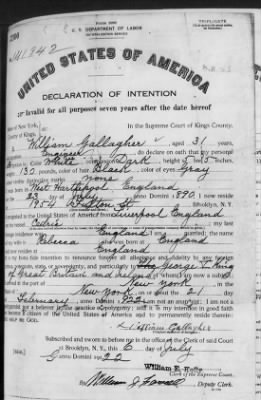 TRIPLICATE
U. S. DEPARTMENT OF LABOR
No 1942
UNITED STATES OF AMERICA
DECLARATION OF INTENTION
Invalid for all purposes seven years after the date hereof
State of New York,
County of Kings,
In the Supreme Court of Kings County.
I, William Gallagher, aged 31 years,
occupation Engineer, do declare on oath that my personal
description is: Color White, complexion Dark, height 5 feet 5 inches,
weight 130 pounds, color of hair Black, color of eyes Gray
other visible distinctive marks none
I was born in West Hartlepool England
on the 23 day of July, anno Domini 1890; I now reside
at Brooklyn, N. Y.
I emigrated to the United States of America from Liverpool England
on the vessel Celtic; my last
foreign residence was England; I am married; the name
of my wife is Rebecca; she was born at England
and now resides at England
It is my bona fide intention to renounce forever all allegiance and fidelity to any foreign
prince, potentate, state, or sovereignty, and particularly to George V King
of Great Britain and Ireland, of whom I am now a subject;
I arrived at the port of New York, in the
State of New York, on or about the 21 day
of February, anno Domini 1922; I am not an anarchist; I am not a
polygamist nor a believer in the practice of polygamy; and it is my intention in good faith
to become a citizen of the United States of America and to permanently reside therein:
SO HELP ME GOD.
William Gallagher
Subscribed and sworn to before me in the office of the Clerk of said Court
at Brooklyn, N. Y., this 6 day of July
[SEAL] anno Domini 1922
William E. Kelly
Clerk of the Supreme Court.
By William J. Deputy Clerk.